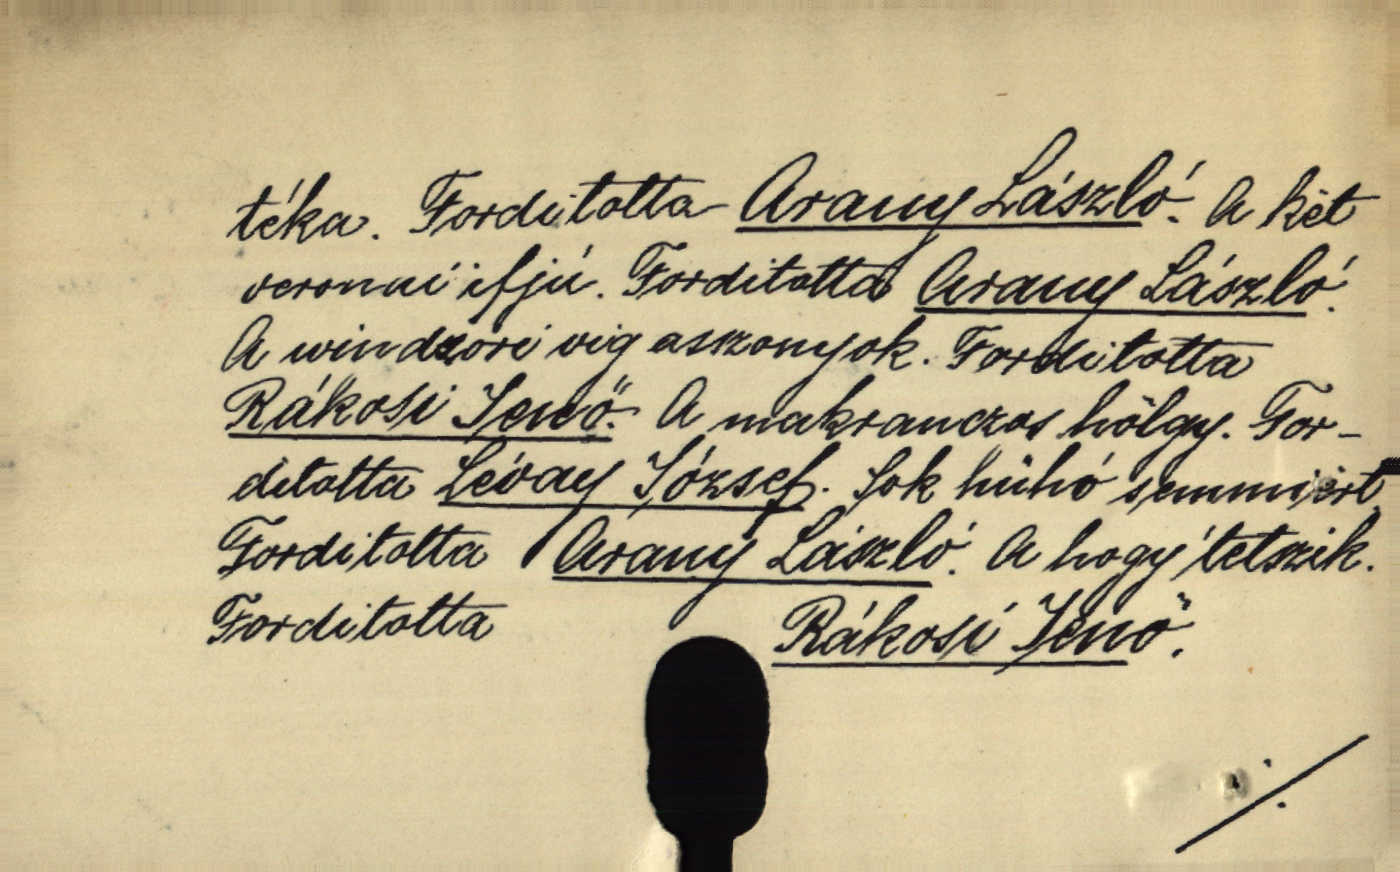 téka. Forditotta Arany László. A két
veronai ifjú. Forditotta Arany László.
A windzori vig asszonyok. Forditotta
Rákosi Jenő. A makranczos hölgy. For-
ditotta Lévay József. Sok hűhó semmiért.
Forditotta Arany László. A hogy tetszik.
Forditotta Rákosi Jenő.